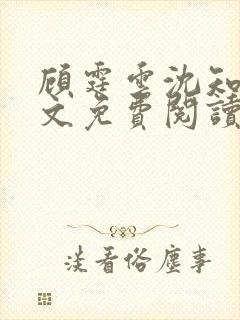 顾霆雲沈知
文免費閱讀
淡看俗塵事